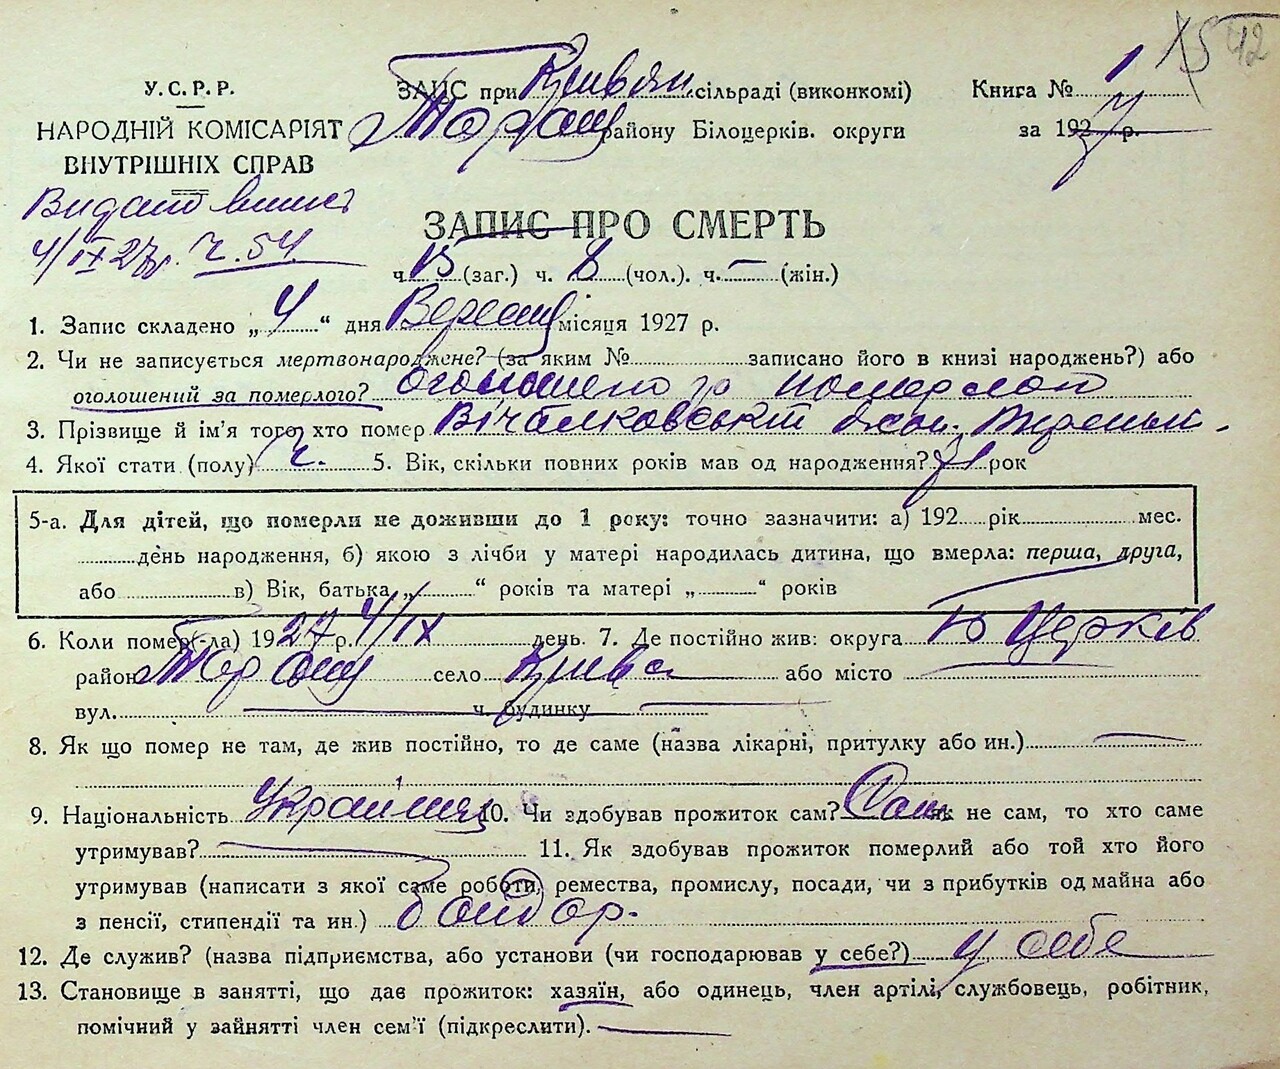 42
У.С.Р.Р.
НАРОДНІЙ КОМІСАРІЯТ
ВНУТРІШНІХ СПРАВ
ЗАГС при сільраді (виконкомі)
району Білоцерків. округи
Книга № 1
за 1927 р.
4/ІХ 27 р. ч. 54
ЗАПИС ПРО СМЕРТЬ
ч. 15 (заг.) ч. 8 (чол.). ч. — (жін.)
1. Запис складено „ 4 “ дня Вересня місяця 1927 р.
2. Чи не записується мертвонароджене? (за яким № записано його в книзі народжень?) або
оголошений за померлого? оголошено за померлого
3. Прізвище й ім'я того, хто помер
4. Якої стати (полу) ч. 5. Вік, скільки повних років мав од народження? 71 рок
5-а. Для дітей, що померли не доживши до 1 року: точно зазначити: а) 192 рік мес.
день народження, б) якою з лічби у матері народилась дитина, що вмерла: перша, друга,
або в) Вік, батька „ “ років та матері „ “ років
6. Коли помер(-ла) 1927 р. 4/ІХ день. 7. Де постійно жив: округа Б Церків
район село Крива або місто —
вул. — ч. будинку —
8. Як що помер не там, де жив постійно, то де саме (назва лікарні, притулку або ин.) —
9. Національність Українець 10. Чи здобував прожиток сам? Сам як не сам, то хто саме
утримував? — 11. Як здобував прожиток померлий або той хто його
утримував (написати з якої саме роботи, ремества, промислу, посади, чи з прибутків од майна або
з пенсії, стипендії та ин.) бондар.
12. Де служив? (назва підприємства, або установи (чи господарював у себе?) у себе
13. Становище в занятті, що дає прожиток: хазяїн, або одинець, член артілі, службовець, робітник,
помічний у зайнятті член сем'ї (підкреслити). —